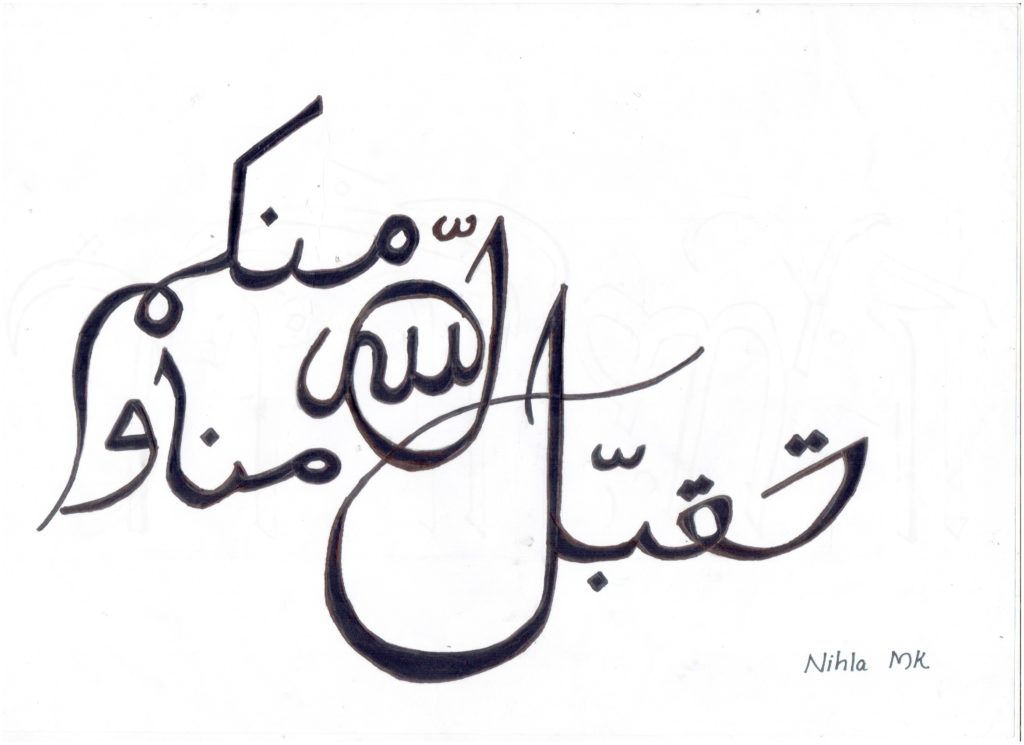 تقبّل اللّه منا و منكم
Nihla MK